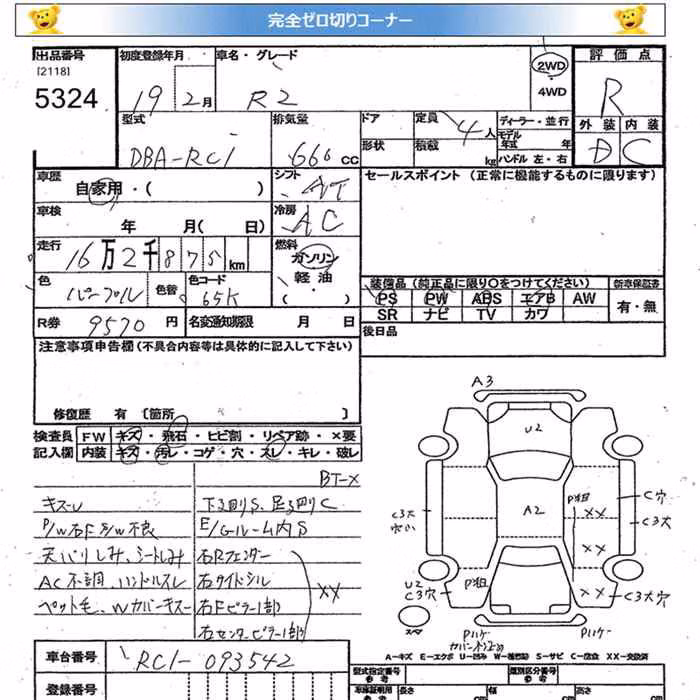 完全ゼロ切りコーナー
出品番号
[2118]
5324
初度登録年月
19 2月
車名・グレード
R2
2WD
4WD
評価点
R
外装 内装
D C
型式
DBA-RC1
排気量
660 CC
ドア
形状
定員
4人
積載
kg
ディーラー・並行
モデル
年式 年
ハンドル 左・右
車歴
自家用・( )
シフト
AT
セールスポイント (正常に機能するものに限ります)
車検
年 月( 日)
冷房
AC
走行
16万2千875km
燃料
ガソリン
軽油
・( )
色
パープル
色替
色コード
65K
装備品 (純正品に限り○をつけてください)
新車保証書
PS PW ABS エアB AW
有・無
SR ナビ TV カワ
R券
9570円
名変通知期限
月 日
後日品
注意事項申告欄(不具合内容等は具体的に記入して下さい)
修復歴 有 [箇所 ]
検査員
記入欄
FW キズ・飛石・ヒビ割・リペア跡・×要
内装 キズ・汚レ・コゲ・穴・スレ・キレ・破レ
BT-×
キズーU
P/W右F S/W不良
天バリしみ、シートしみ
AC不調、ハンドルスレ
ペット毛、Wカバーキズー
下廻りS、足廻りC
E/Gルーム内S
右Rフェンダー
右サイドシル
右Fピラー1部
右センターピラー1部
××
A3
U2
A2
P粗
××
××
××
C穴
C3大
C3大
U2
C3穴
P粗
C3大穴
スペア
P11ケー
P11ケー
A-キズ E-エクボ U-凹み W-補修跡 S-サビ C-腐食 XX-交換済
車台番号
RC1-093542
登録番号
型式指定番号
参考
類別区分番号
参考
車庫証明用
参考
長さ
cm
幅
cm
高さ
cm